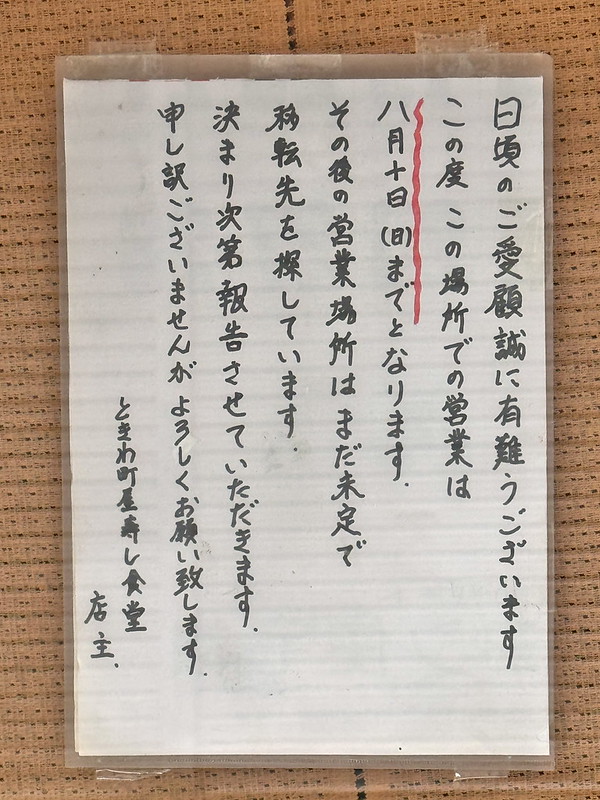 日頃のご愛顧誠に有難うございます
この度 この場所での営業は
八月十日(日)までとなります.
その後の営業場所はまだ未定で
移転先を探しています.
決まり次第報告させていただきます.
申し訳ございませんがよろしくお願い致します.
ときわ町屋寿し食堂
店主.